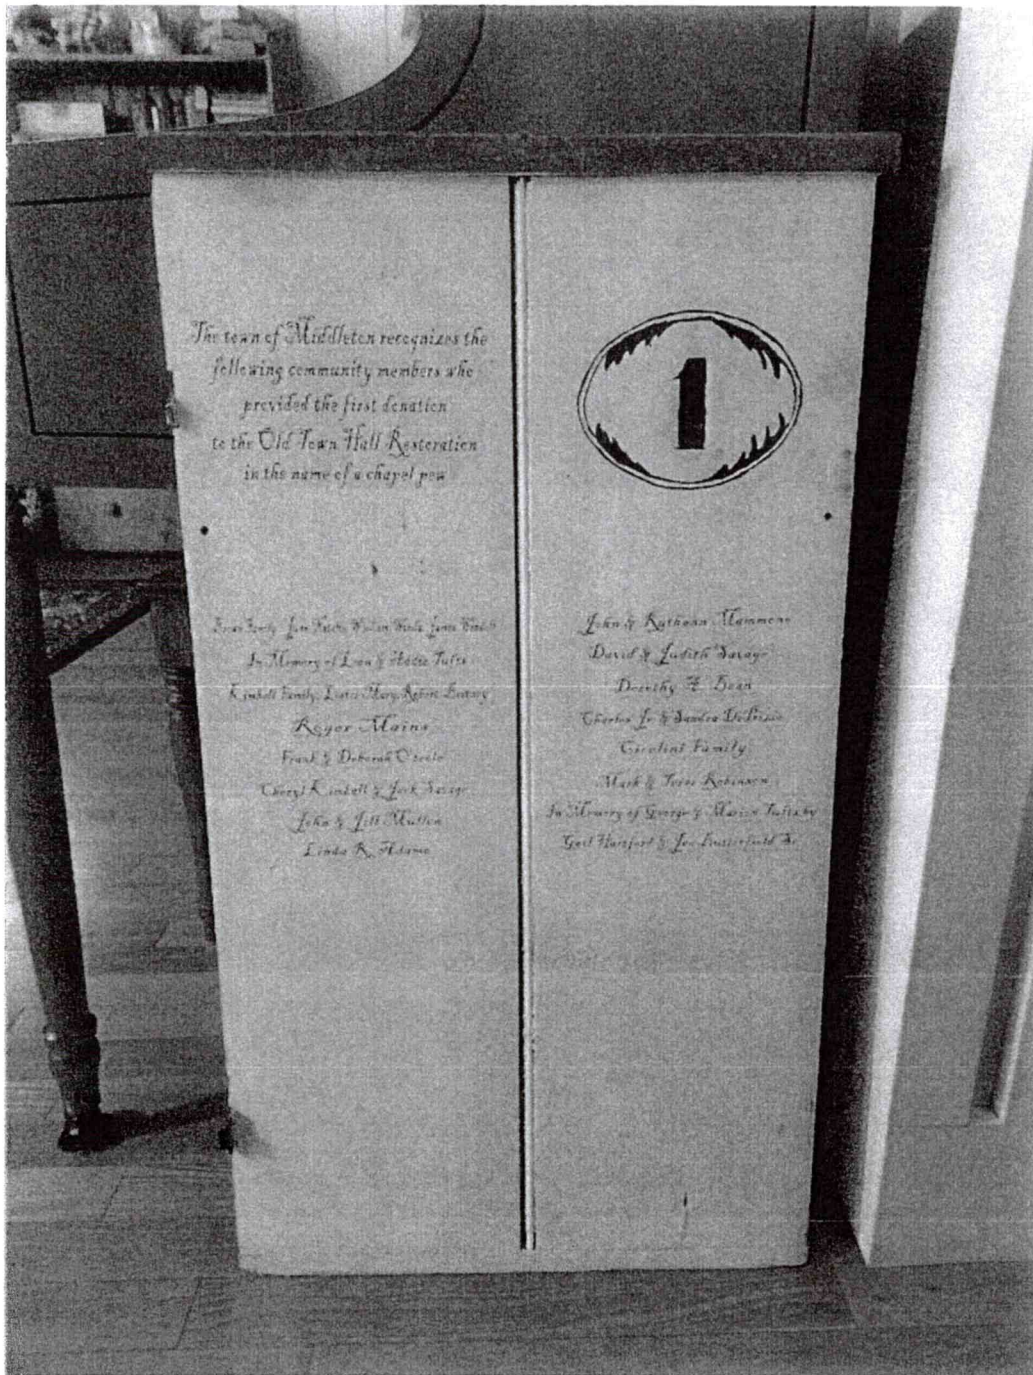 The town of Middleton recognizes the
following community members who
provided the first donation
to the Old Town Hall Restoration
in the name of a chapel pew
Family
In Memory of Leon & Tufts
Kimball Family, Mary, Robert
Roger Mains
Frank & Deborah
Cheryl Kimball & Jack Savage
John & Jill Mullen
Linda R. Adams
1
John & Ruthann Mammone
David & Judith Savage
Dorothy A.
Charles Jr. & Sandra
Family
Mark & Robinson
In Memory of George & Marion Tufts by
Gail & Joe Butterfield Sr.